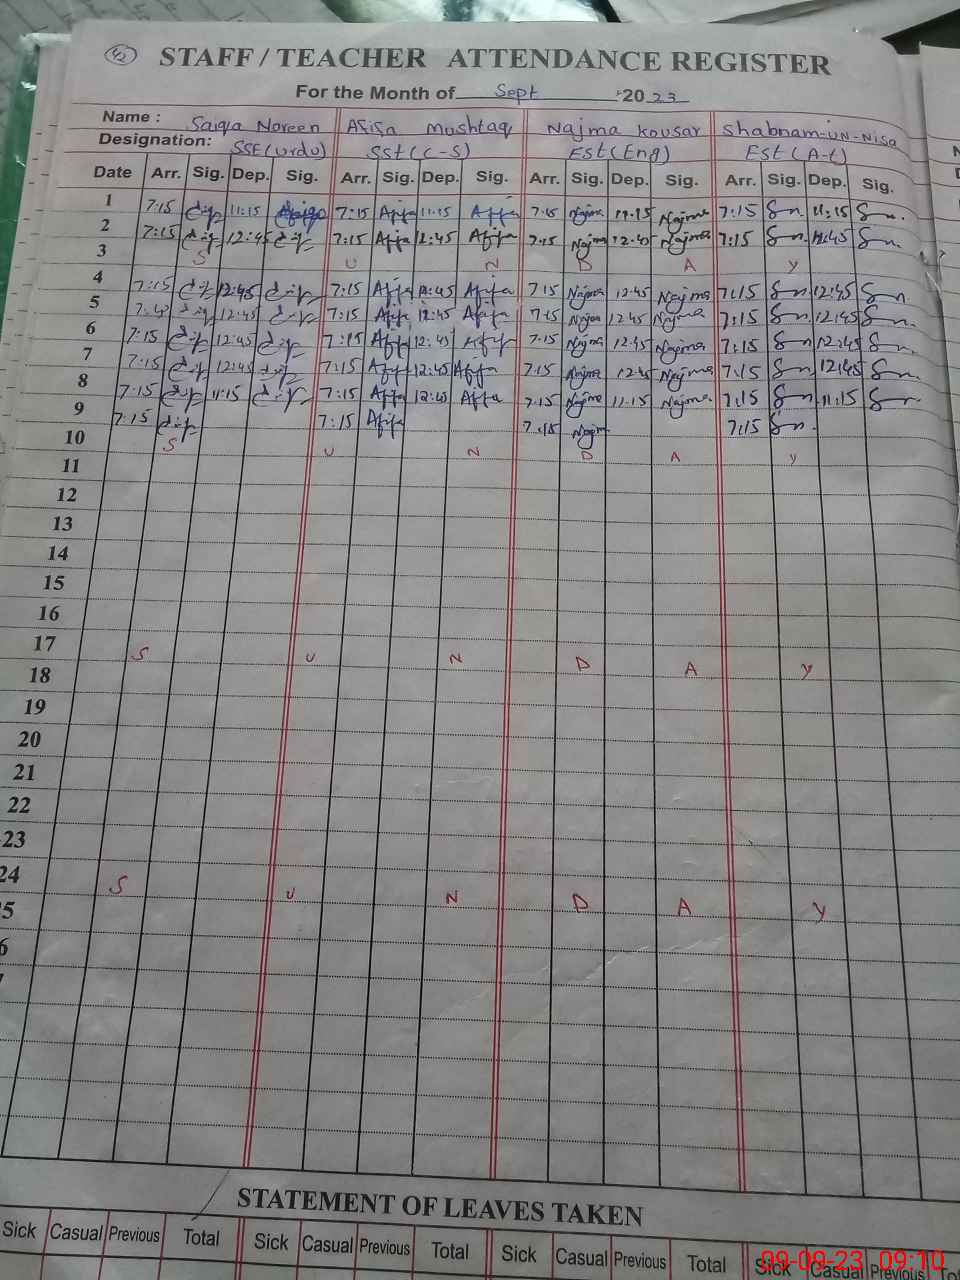 42 STAFF / TEACHER ATTENDANCE REGISTER
For the Month of Sept 2023
Name : Saiqa Noreen Afifa Mushtaq Najma Kousar Shabnam-UN-Nisa
Designation: SSE(Urdu) SSt(C-S) ESt(Eng) ESt(A-t)
Date Arr. Sig. Dep. Sig. Arr. Sig. Dep. Sig. Arr. Sig. Dep. Sig. Arr. Sig. Dep. Sig.
1 7:15 11:15 7:15 Afifa 11:15 Afifa 7:15 Najma 11:15 Najma 7:15 Sn 11:15 Sn
2 7:15 12:45 7:15 Afifa 12:45 Afifa 7:15 Najma 12:45 Najma 7:15 Sn 12:45 Sn
3 S U N D A Y
4 7:15 12:45 7:15 Afifa 12:45 Afifa 7:15 Najma 12:45 Najma 7:15 Sn 12:45 Sn
5 12:45 7:15 Afifa 12:45 Afifa 7:15 Najma 12:45 Najma 7:15 Sn 12:45 Sn
6 7:15 12:45 7:15 Afifa 12:45 Afifa 7:15 Najma 12:45 Najma 7:15 Sn 12:45 Sn
7 7:15 12:45 7:15 Afifa 12:45 Afifa 7:15 Najma 12:45 Najma 7:15 Sn 12:45 Sn
8 7:15 11:15 7:15 Afifa Afifa 7:15 Najma 11:15 Najma 7:15 Sn 11:15 Sn
9 7:15 7:15 Afifa 7:15 Najm 7:15 Sn
10 S U N D A Y
11
12
13
14
15
16
17 S U N D A Y
18
19
20
21
22
23
24 S U N D A Y
5
6
STATEMENT OF LEAVES TAKEN
Sick Casual Previous Total Sick Casual Previous Total Sick Casual Previous Total Sick Casual Previous Tot
09-09-23 09:10